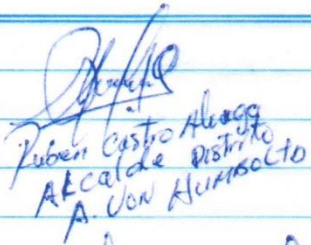 Ruben Castro Aliaga
Alcalde Distrito
A. VON HUMBOLTO